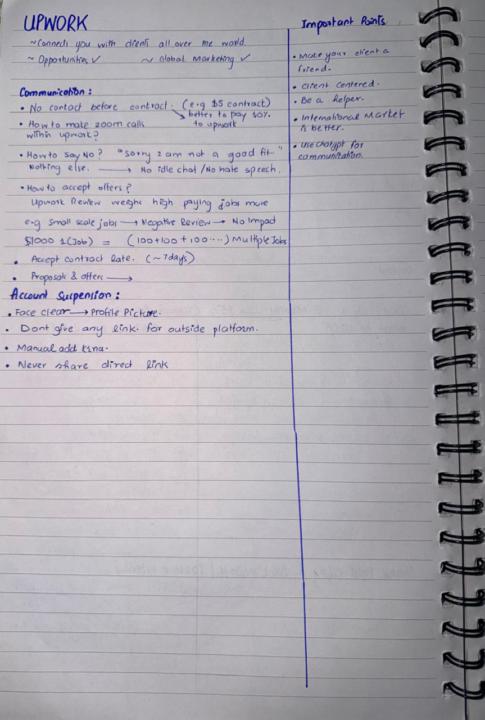 UPWORK
~Connects you with clients all over the world.
~ Opportunities ✓ ~ Global Marketing ✓
Communication :
• No contact before contract. (e.g $5 contract)
better to pay 50%
to upwork
• How to make zoom calls
within upwork?
• How to say No? "Sorry I am not a good fit"
Nothing else. → No idle chat /No hate speech.
• How to accept offers?
Upwork Review weighs high paying jobs more
e.g Small scale jobs → Negative Review → No Impact
$1000 1(Job) = (100+100+100....) Multiple Jobs
• Accept contract late. (~7days)
• Proposals & offers →
Account Suspension :
• Face clear → Profile Picture.
• Dont give any link for outside platform.
• Manual add
• Never share direct link
Important Points
• Make your client a
friend.
• Client centered.
• Be a helper.
• International Market
is better.
• Use chatgpt for
communication.